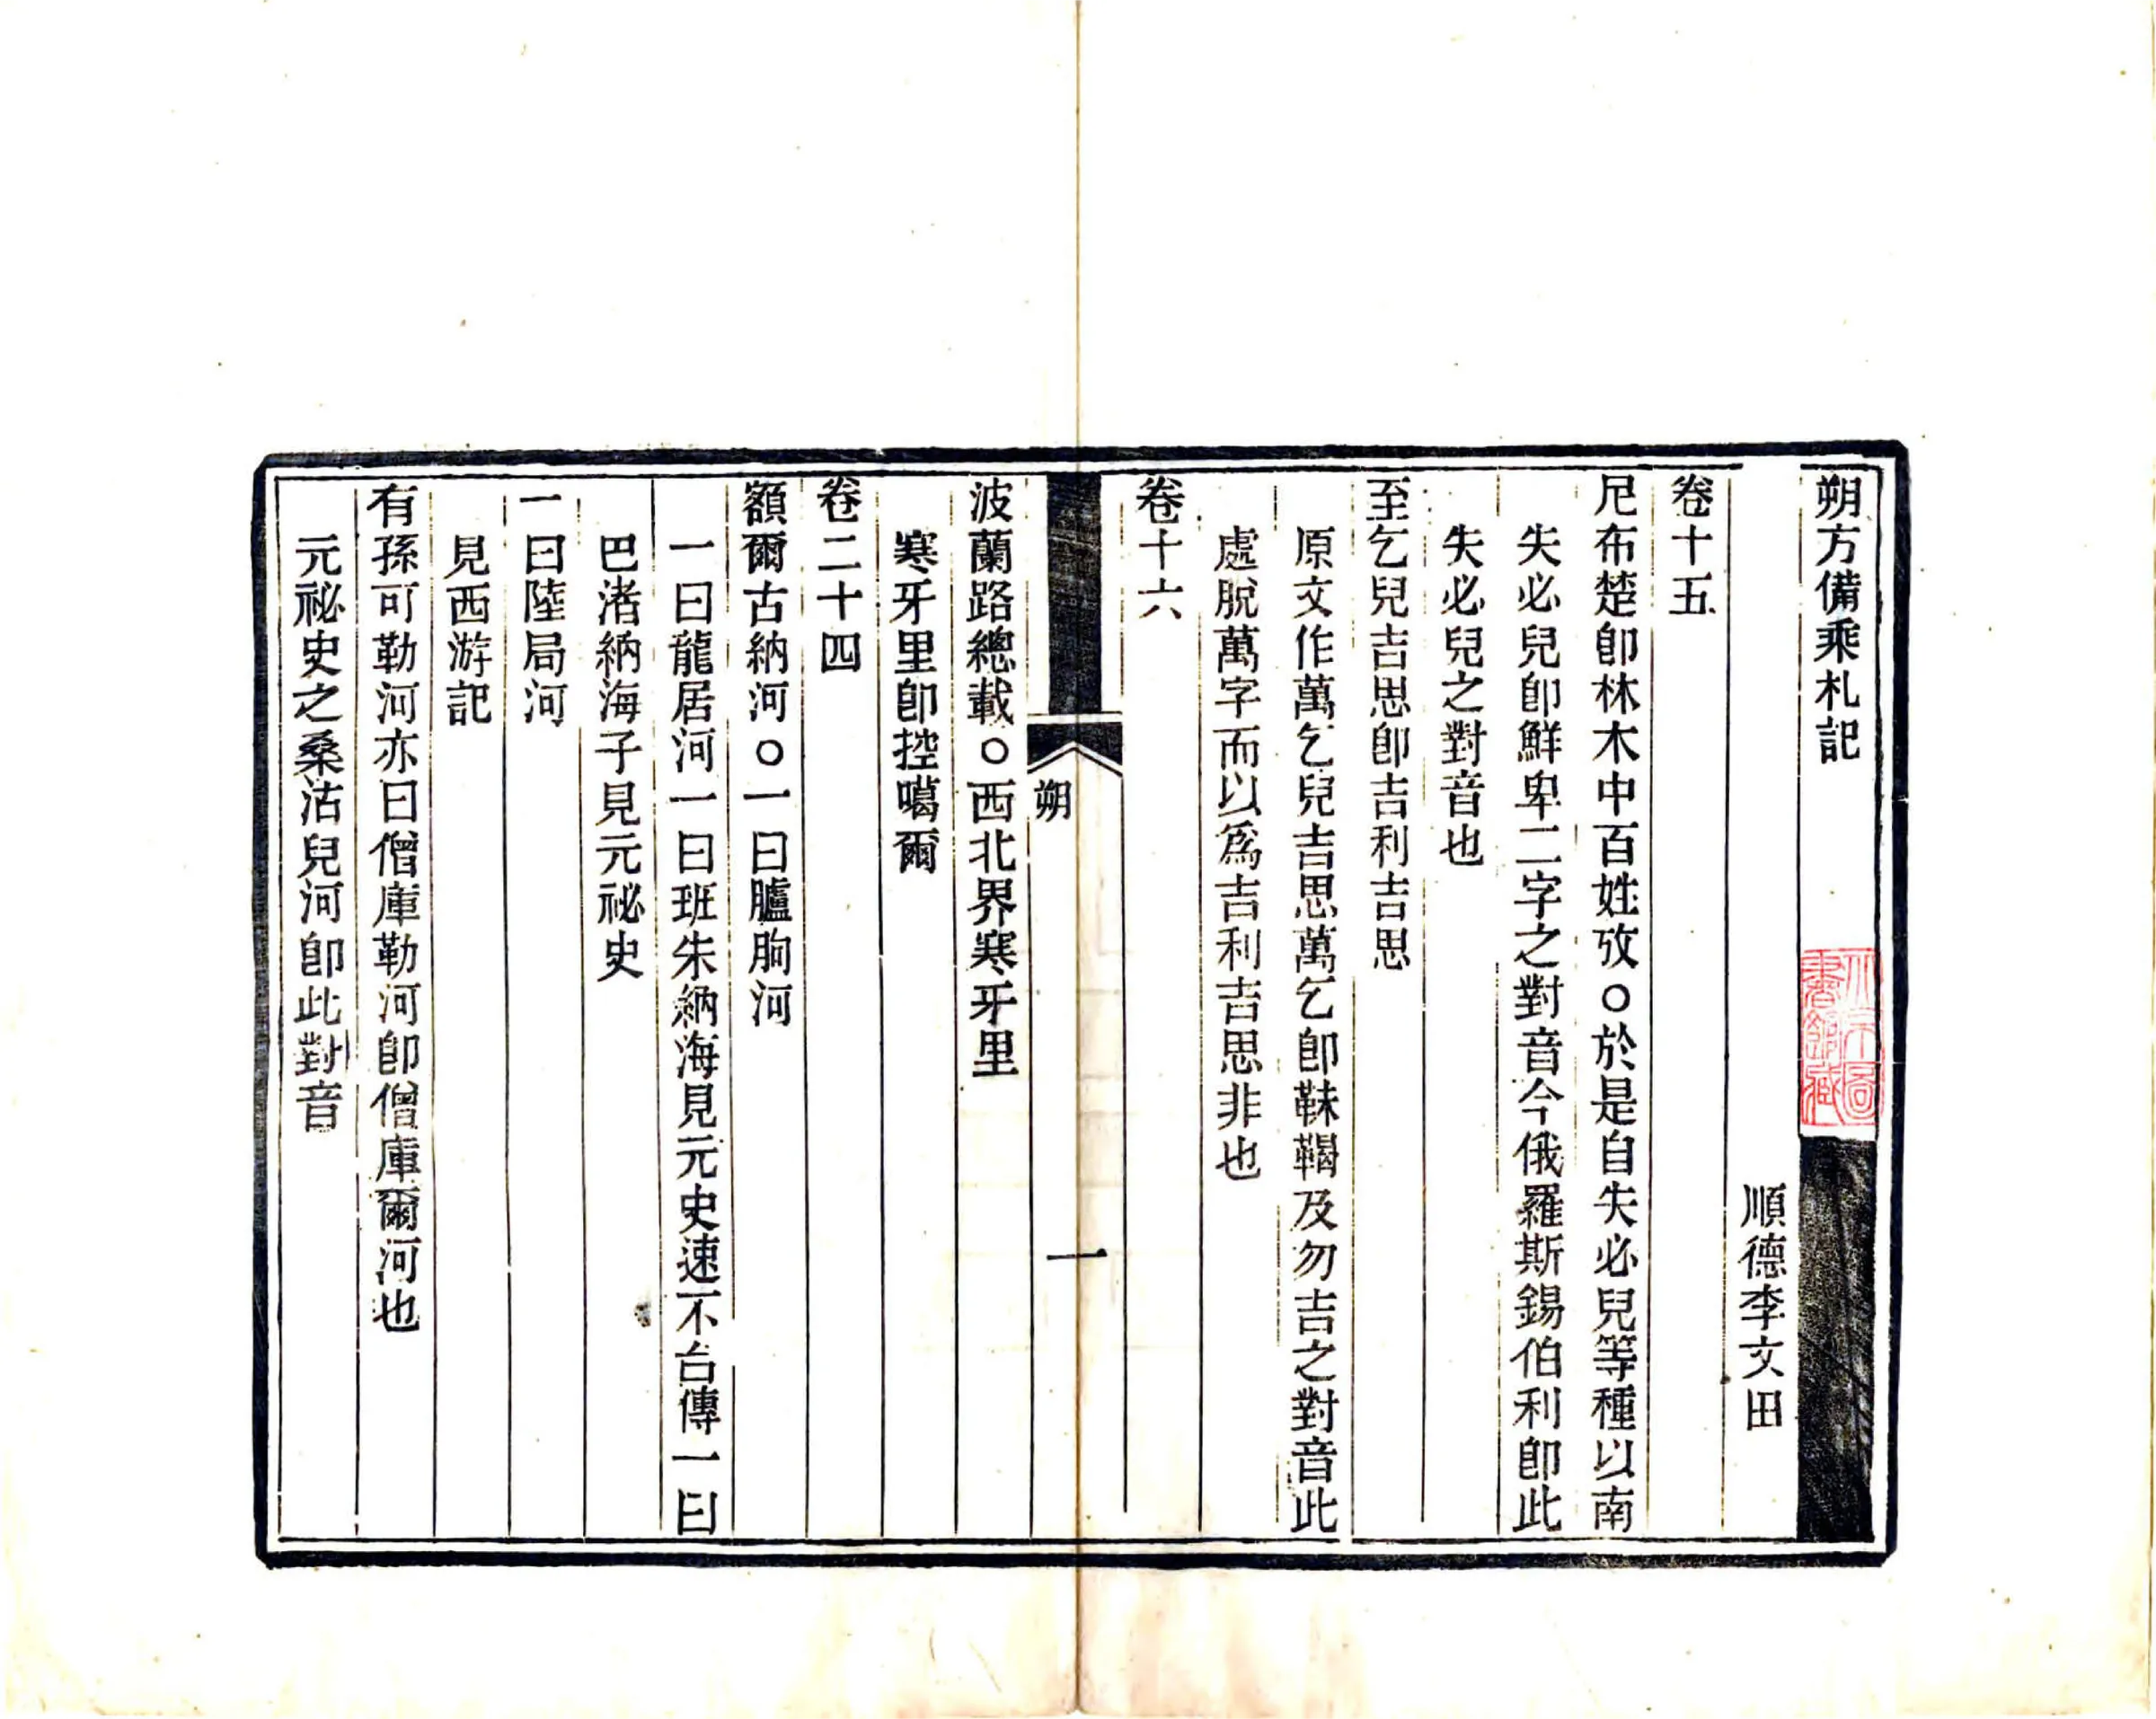 朔方備乘札記
順德李文田
卷十五
尼布楚卽林木中百姓攷〇於是自失必兒等種以南
失必兒卽鮮卑二字之對音今俄羅斯錫伯利卽此
失必兒之對音也
至乞兒吉思卽吉利吉思
原文作萬乞兒吉思萬乞卽靺鞨及勿吉之對音此
處脫萬字而以爲吉利吉思非也
卷十六
朔
一
波蘭路總載〇西北界寒牙里
寒牙里卽控噶爾
卷二十四
額爾古納河〇一曰臚朐河
一曰龍居河一曰班朱納海見元史速不台傳一曰
巴渚納海子見元祕史
一曰陸局河
見西游記
有孫可勒河亦曰僧庫勒河卽僧庫爾河也
元祕史之桑沽兒河卽此對音